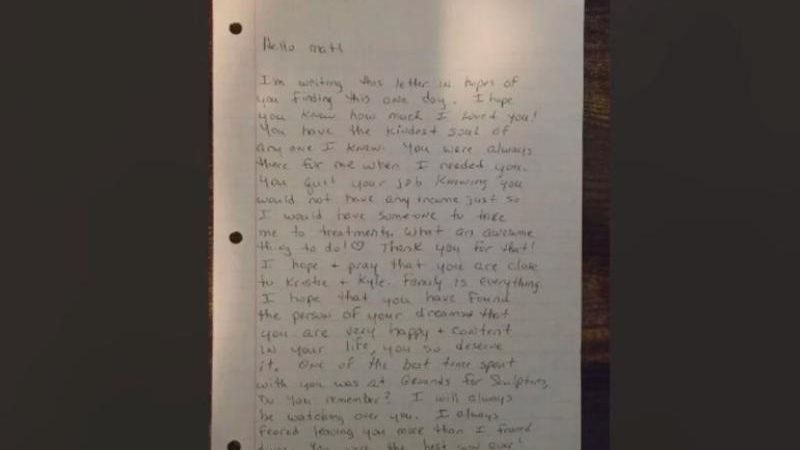 Hello Matt
I'm writing this letter in hopes of
you finding this one day. I hope
you know how much I loved you!
You have the kindest soul of
anyone I know. You were always
there for me when I needed you.
You quit your job knowing you
would not have any income just so
I would have someone to take
me to treatments. What an awesome
thing to do!♡ Thank you for that!
I hope + pray that you are close
to Kristie + Kyle. Family is everything.
I hope that you have found
the person of your dreams + that
you are very happy + content
in your life, you so deserve
it. One of the best times spent
with you was at Grounds for Sculpture,
Do you remember? I will always
be watching over you. I always
feared leaving you more than I feared
You were the best son ever!